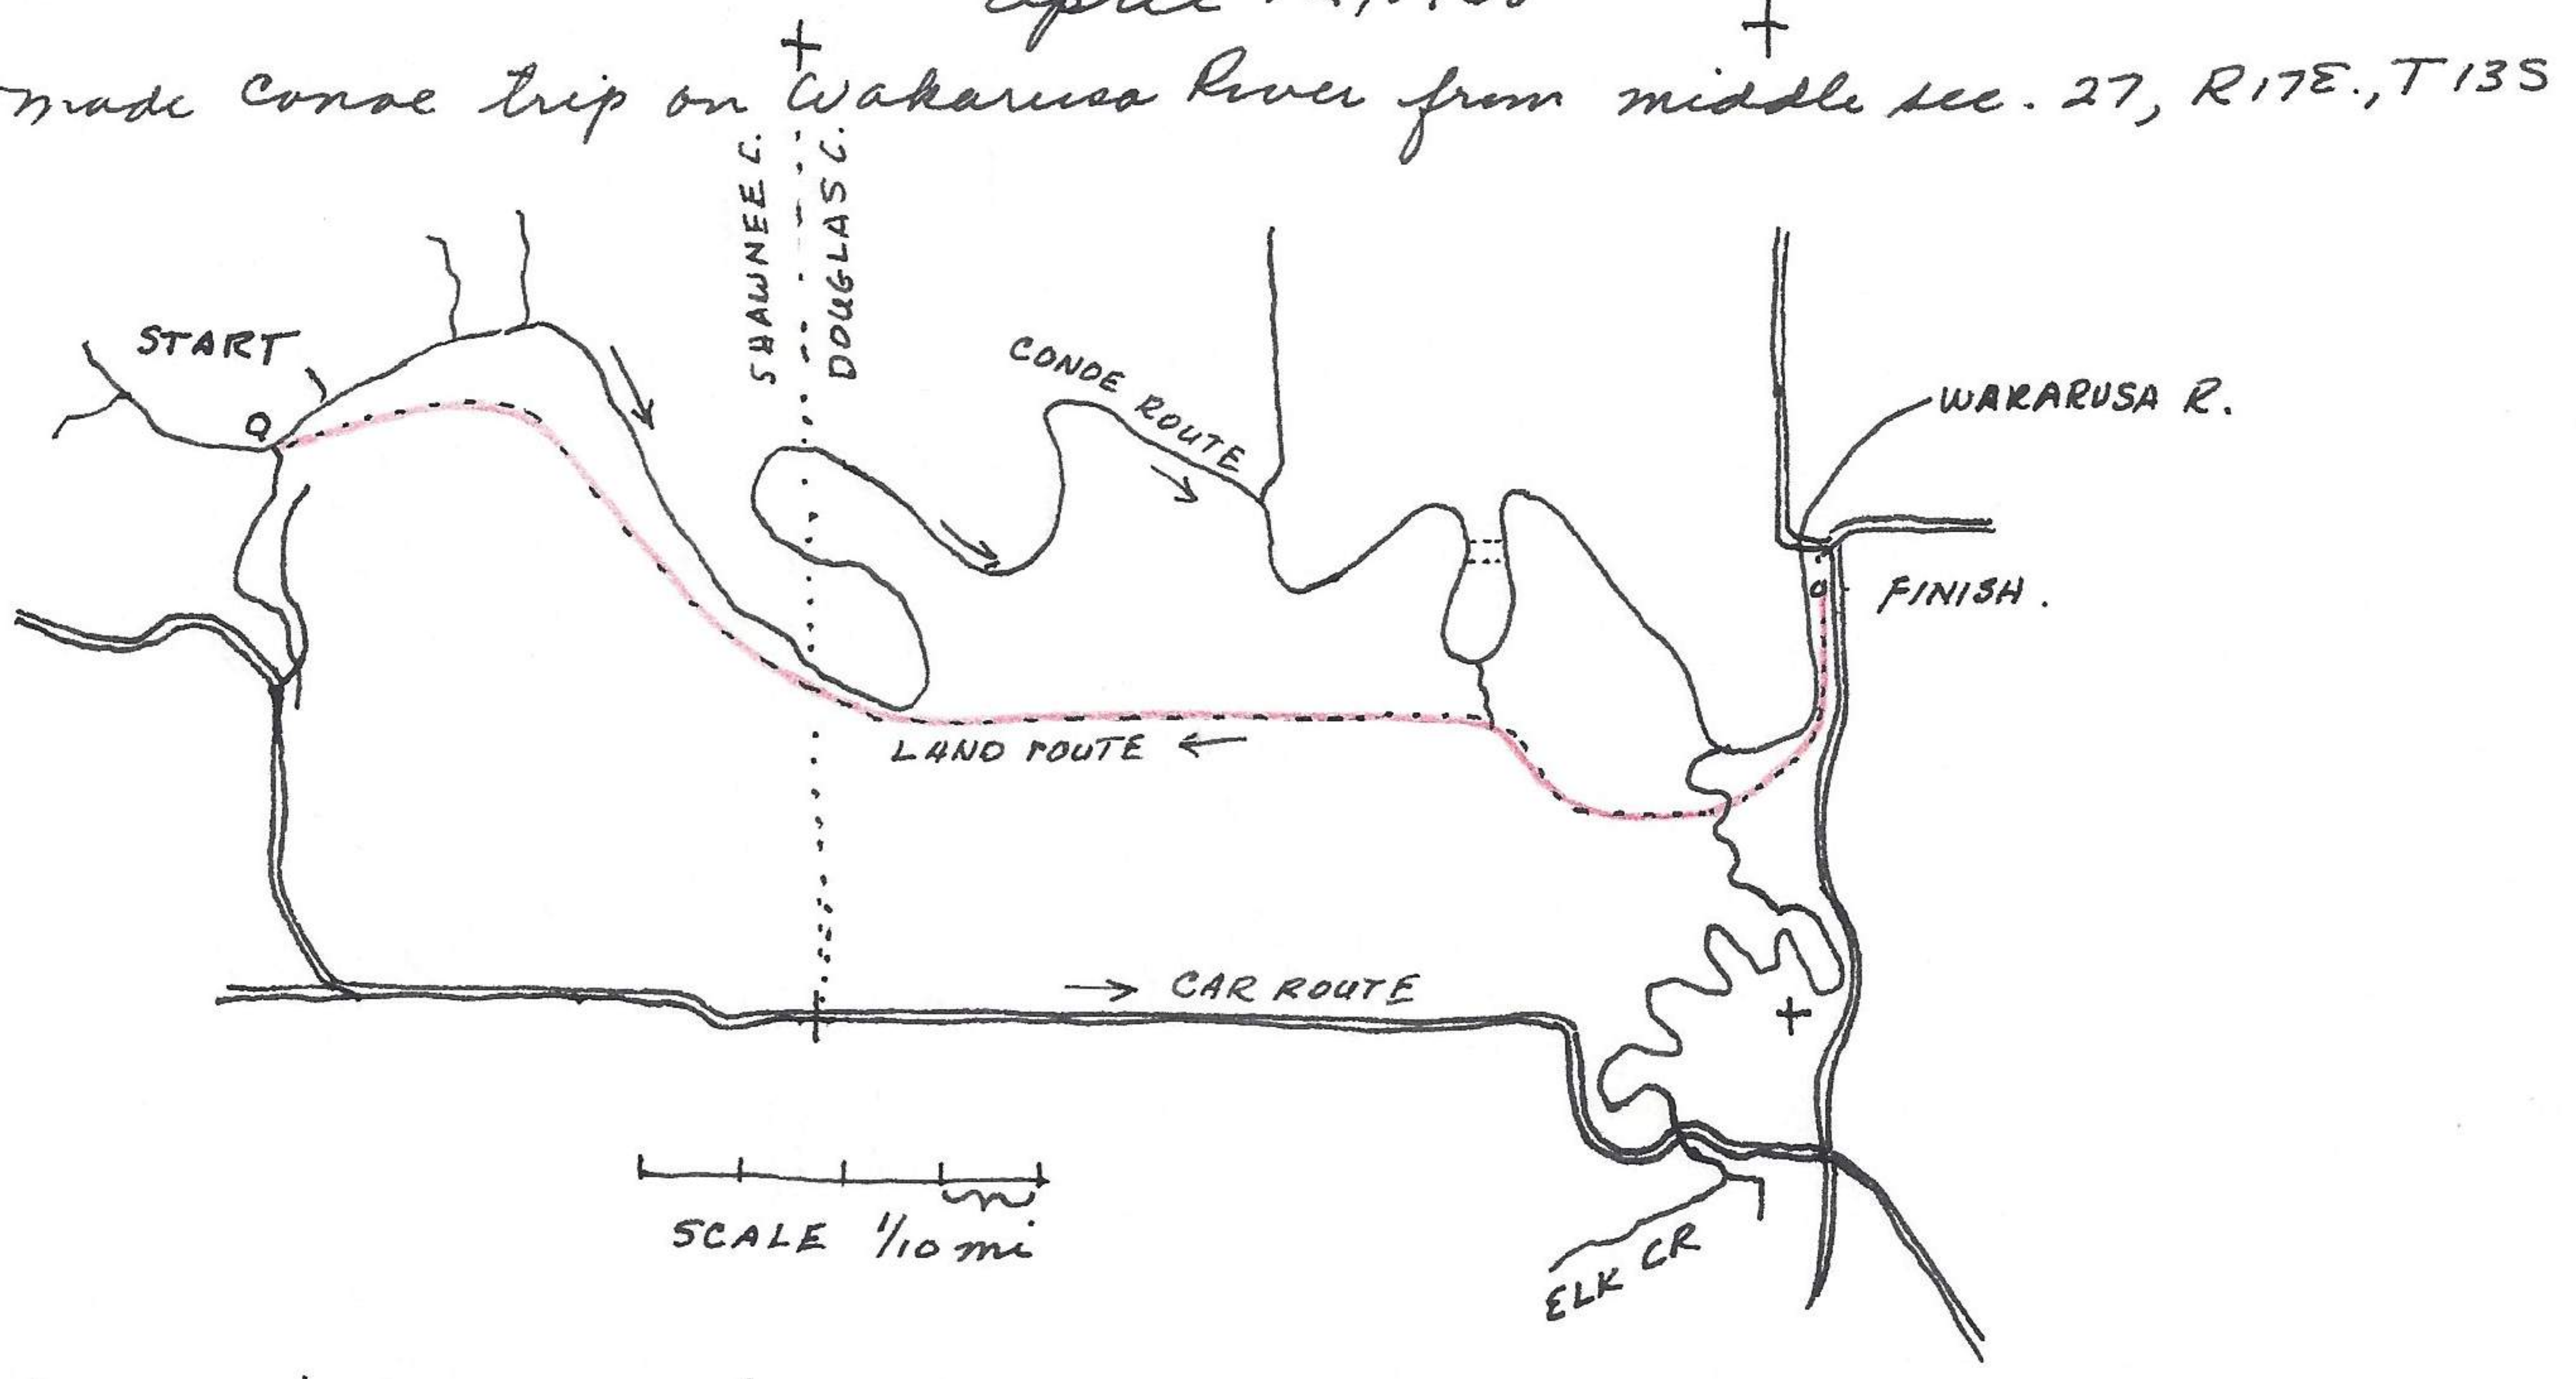 April
made Canoe trip on Wakarusa River from middle sec. 27, R17E., T13S
SHAWNEE C.
DOUGLAS C.
START
CONOE ROUTE
WAKARUSA R.
FINISH.
LAND ROUTE
CAR ROUTE
SCALE 1/10 mi
ELK CR